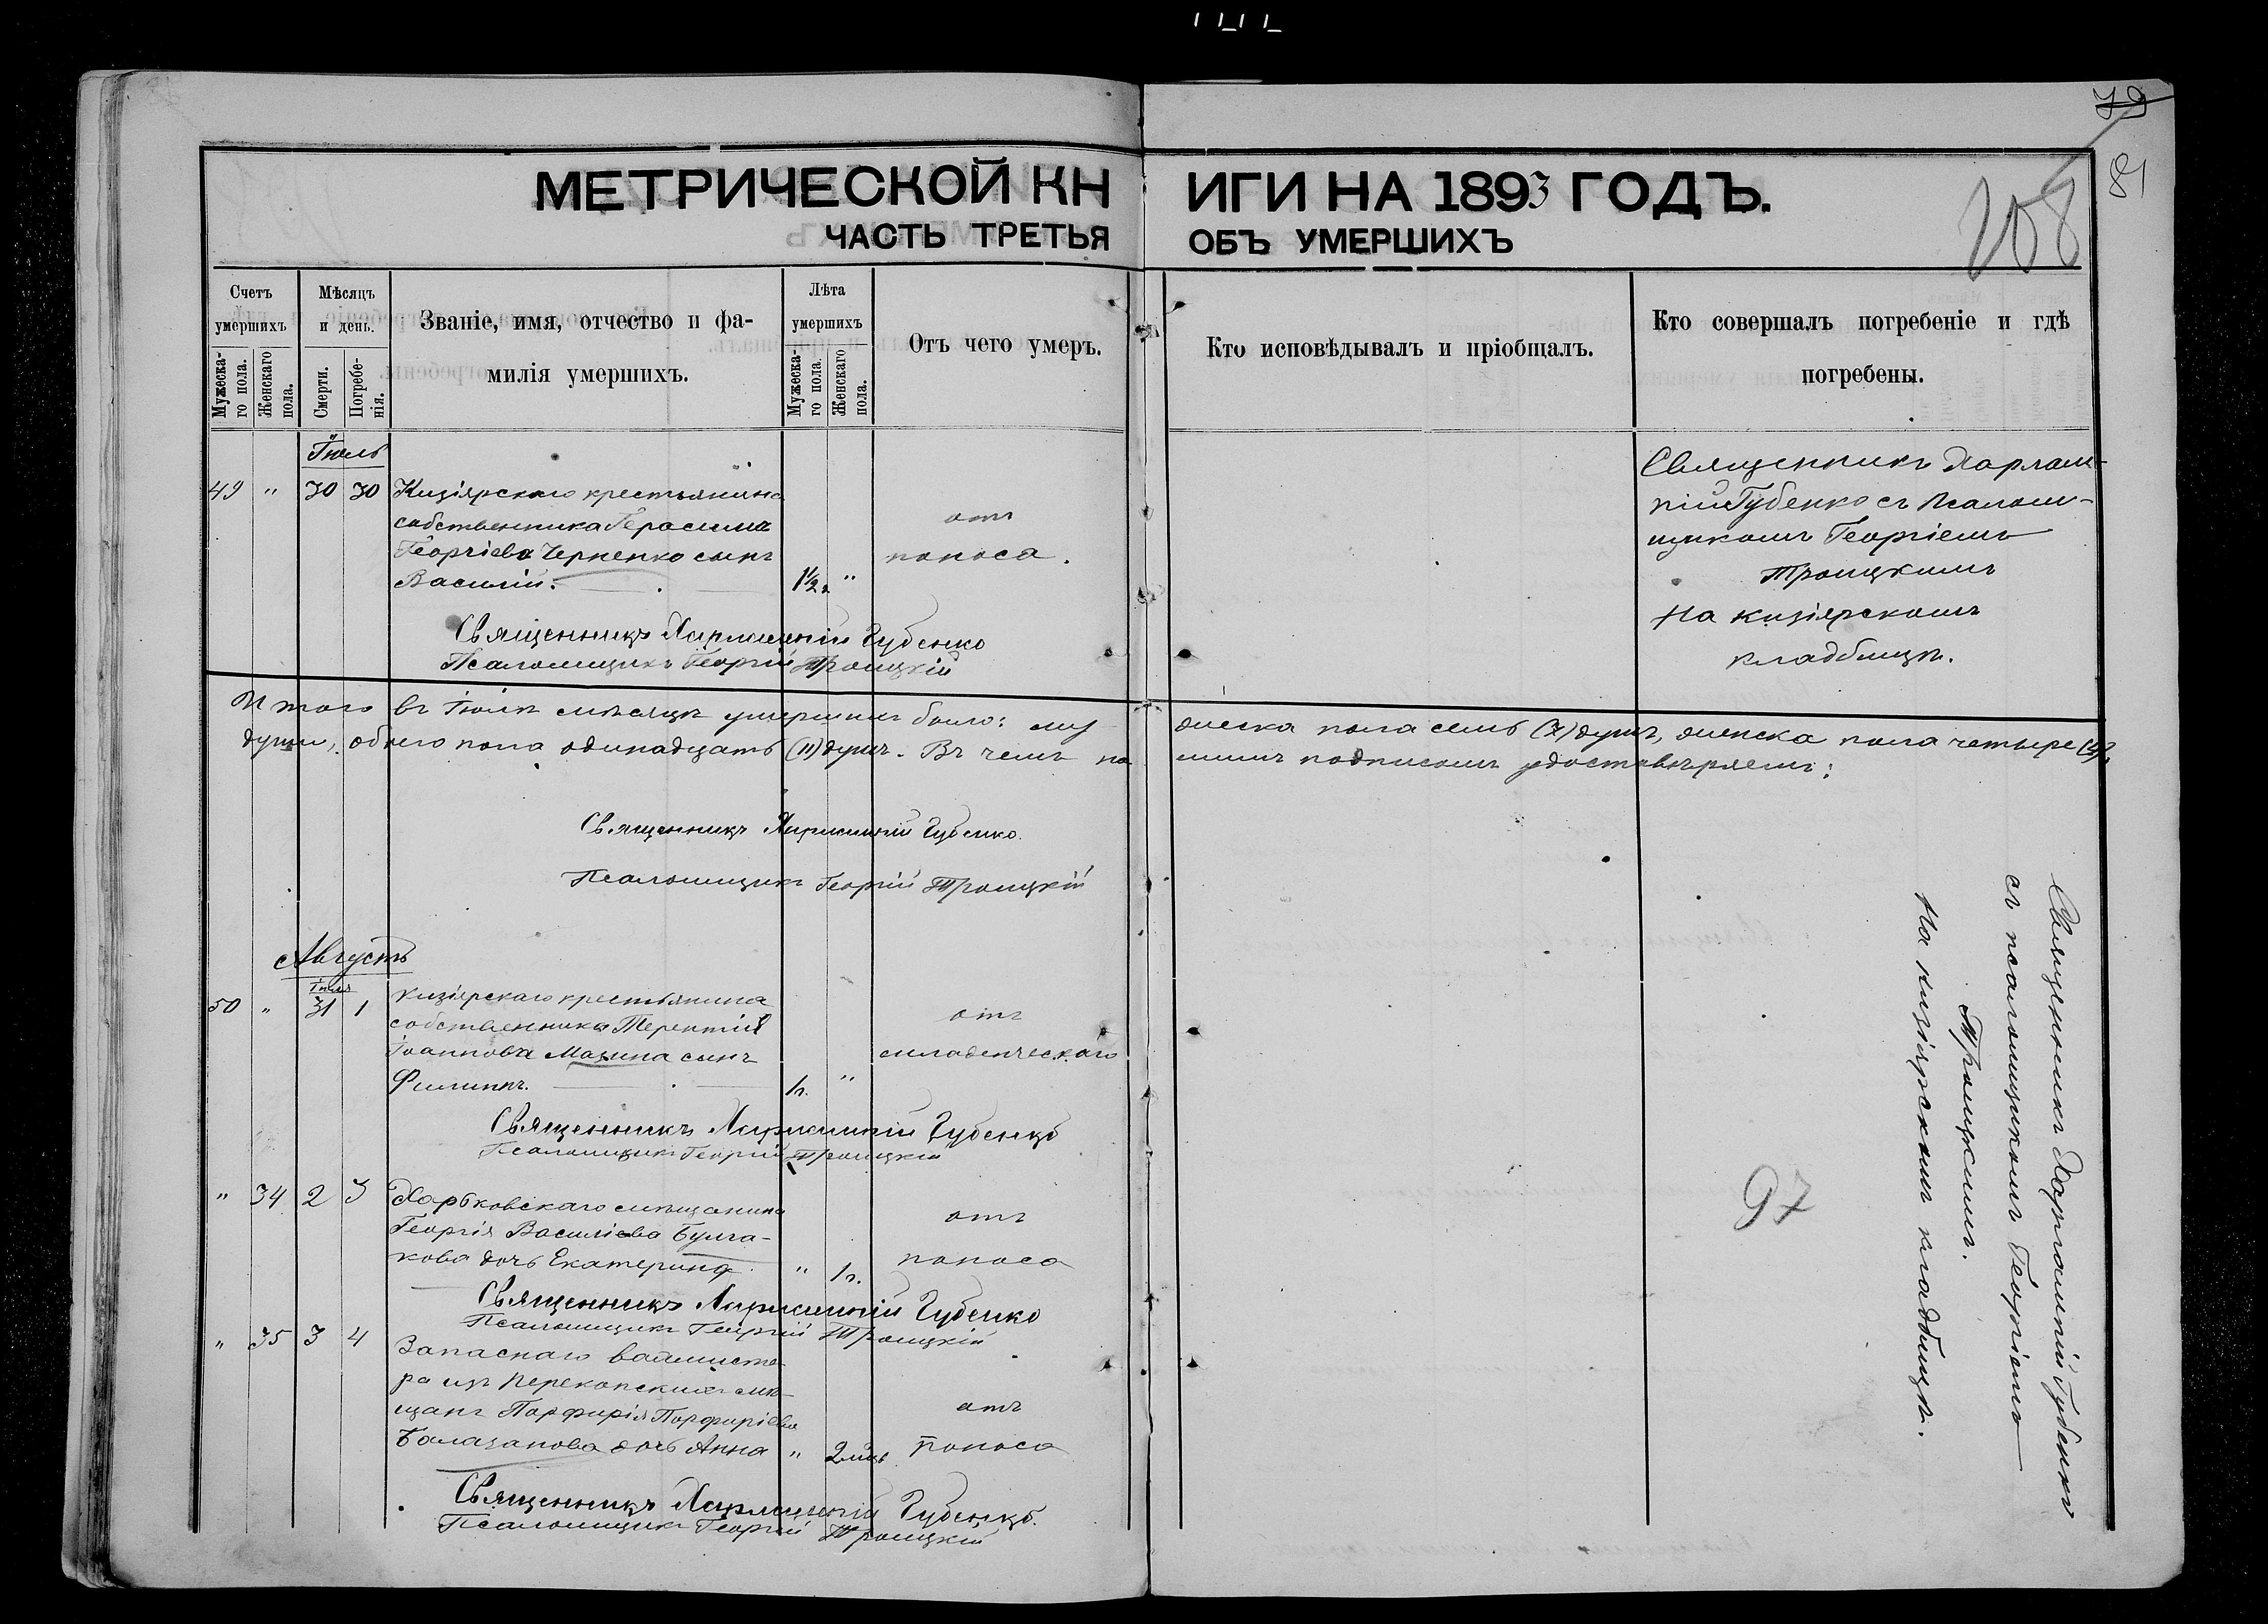 79
81
МЕТРИЧЕСКОЙ КНИГИ НА 1893 ГОДЪ.
108
ЧАСТЬ ТРЕТЬЯ ОБЪ УМЕРШИХЪ
Счетъ умершихъ
Мужеска-го пола.
Женскаго пола.
Мѣсяцъ и день.
Смерти.
Погребе-нія.
Званіе, имя, отчество и фа-
милія умершихъ.
Лѣта умершихъ
Мужеска-го пола.
Женскаго пола.
Отъ чего умеръ.
Кто исповѣдывалъ и пріобщалъ.
Кто совершалъ погребеніе и гдѣ
погребены.
Іюль
49 " 30 30 Кизіярскаго крестьянина
собственника Герасима
Георгіева Черненко сынъ
Василій. 1½ "
отъ
поноса.
Священникъ Харлам-
пій Губенко съ псалом-
щикомъ Георгіемъ
Троицкимъ
На кизіярскомъ
кладбищѣ.
Священникъ Харлампій Губенко
Псаломщикъ Георгій Троицкій
Итого въ Іюлѣ мѣсяцѣ умершихъ было: мужеска пола семь (7) душъ, женска пола четыре (4)
души, обоего пола одинадцать (11) душъ. Въ чемъ подписомъ удостовѣряемъ:
Священникъ Харлампій Губенко.
Псаломщикъ Георгій Троицкій
Августъ
Іюля
50 " 31 1 Кизіярскаго крестьянина
собственника Терентія
Іоаннова Мазина сынъ
Филиппъ. 1 г. "
отъ
младенческаго
Священникъ Харлампій Губенко
Псаломщикъ Георгій Троицкій
" 34 2 3 Харьковскаго мѣщанина
Георгія Василіева Булга-
кова дочь Екатерина. " 1 г.
отъ
поноса
Священникъ Харлампій Губенко
Псаломщикъ Георгій Троицкій
" 35 3 4 Запаснаго вахмисте-
ра изъ Перекопскихъ мѣ-
щанъ Порфирія Порфиріева
Балазанова дочь Анна " 2 мѣс.
отъ
поноса
Священникъ Харлампій Губенко.
Псаломщикъ Георгій Троицкій
Священникъ Харлампій Губенко
съ псаломщикомъ Георгіемъ
Троицкимъ.
На кизіярскомъ кладбищѣ.
97